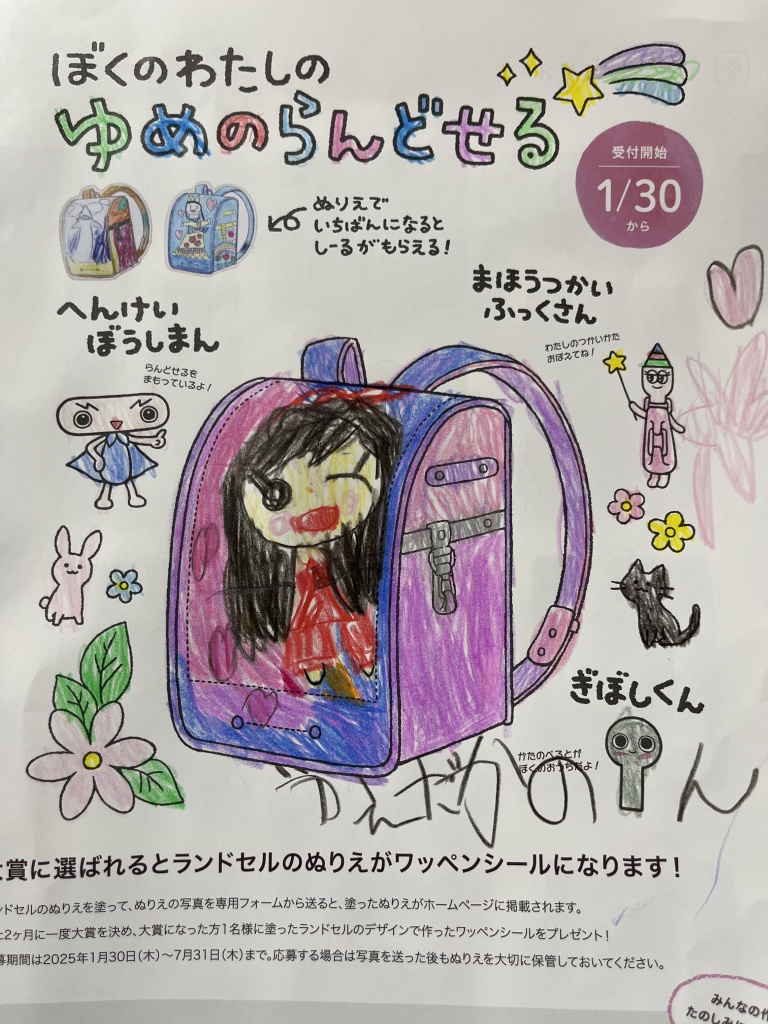 ぼくのわたしの
ゆめのらんどせる
受付開始
1/30
から
ぬりえで
いちばんになると
しーるがもらえる!
まほうつかい
ふっくさん
わたしのつかいかた
おぼえてね!
へんけい
ぼうしまん
らんどせるを
まもっているよ!
ぎぼしくん
かたのべるとが
ぼくのおうちだよ!
大賞に選ばれるとランドセルのぬりえがワッペンシールになります!
ンドセルのぬりえを塗って、ぬりえの写真を専用フォームから送ると、塗ったぬりえがホームページに掲載されます。
2ヶ月に一度大賞を決め、大賞になった方1名様に塗ったランドセルのデザインで作ったワッペンシールをプレゼント!
募期間は2025年1月30日(木)〜7月31日(木)まで。応募する場合は写真を送った後もぬりえを大切に保管しておいてください。
みんなの作